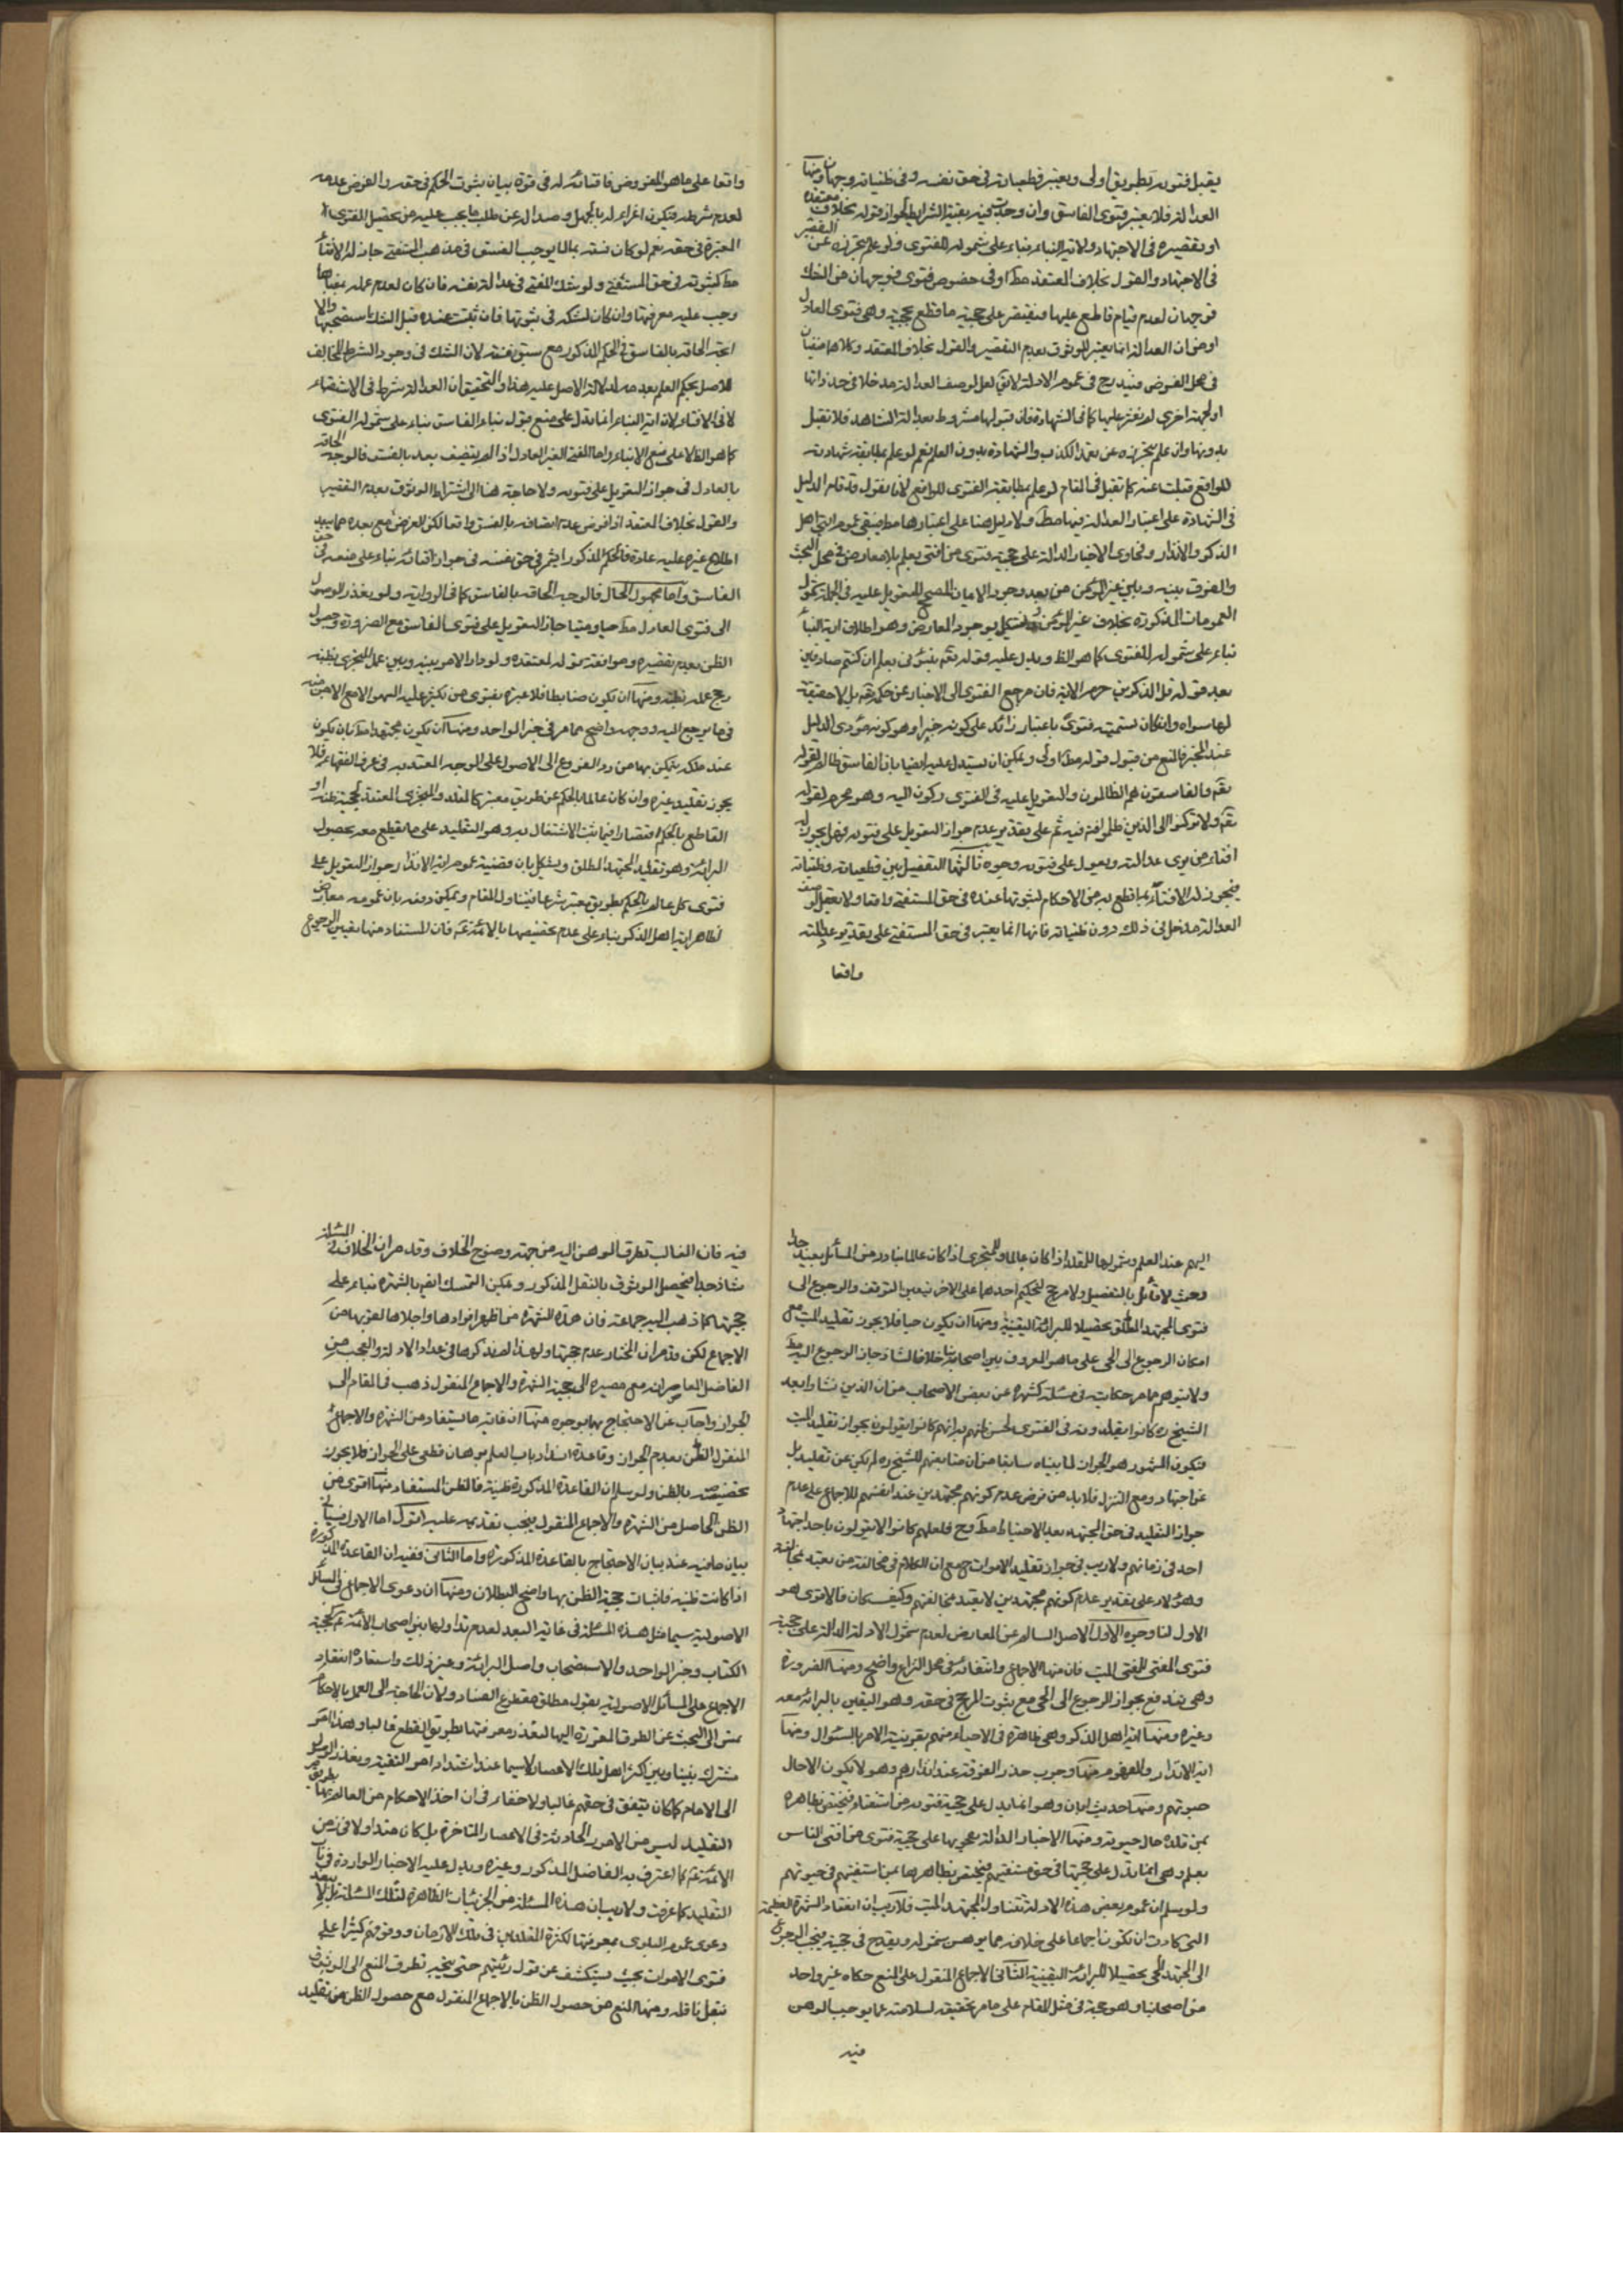 يقبل فتويه بطريق اولى ويعتبر قطعياته في حق نفسه وفي ظنياته وجهان ومنها
العدالة فلا يعتبر فتوى الفاسق وان وجدت فيه بقية الشرايط لجواز قوله بخلاف معتقده
او تقصيره في الاجتهاد ولاية النباء بناء على شموله للفتوى ولو علم تحرزه عن التقصير
في الاجتهاد والقول بخلاف المعتقد مط او في خصوص فتوى فوجهان من الشك
فوجهان لعدم قيام قاطع عليها فيقتصر على حجية ما قطع بحجيته وهي فتوى العادل
او من ان العدالة انما يعتبر للوثوق بعدم التقصير والقول بخلاف المعتقد وكلاهما منفيان
في محل الفرض فيندرج في عموم الادلة لايق لعل لوصف العدالة مدخلا في حد ذاتها
او لجهة اخرى لم نعثر عليها كما في الشهادة فان قبولها مشروط بعدالة الشاهد فلا تقبل
بدونها وان علم تحرزه عن تعمد الكذب والشهادة بدون العلم نعم لو علم بمطابقة شهادته
للواقع قبلت عنه كما تقبل في المقام لو علم بمطابقة الفتوى للواقع لانا نقول قد قام الدليل
في الشهادة على اعتبار العدالة فيها مط ولا دليل هنا على اعتبارها مط فيبقى عموم ايتي اهل
الذكر والانذار وفحاوى الاخبار الدالة على حجية فتوى من افتى بعلم بلا معارض في محل البحث
والفرق بينه وبين غير المؤمن من بعد وجود الايمان المصحح للتعويل عليه في الجملة
العمومات المذكورة بخلاف غير المؤمن ويشكل بوجود المعارض وهو اطلاق اية النبأ
بناء على شموله للفتوى كما هو الظ ويدل عليه قوله تعه نبئوني بعلم ان كنتم صادقين
بعد قوله قل الذكرين حرم الاية فان مرجع الفتوى الى الاخبار عن حكمه تعه بل لا حقيقة
لها سواه وان كان تسميته فتوى باعتبار زائد على كونه خبرا وهو كونه مؤدى الدليل
عند المخبر فالمنع من قبول قوله مط اولى ويمكن ان يستدل عليه ايضا بان الفاسق ظالم لقوله
تعه والفاسقون هم الظالمون والتعويل عليه في الفتوى ركون اليه وهو محرم لقوله
تعه ولا تركنوا الى الذين ظلموا فيه ثم على تقدير عدم جواز التعويل على فتويه فهل يجوز له
افتاء من يرى عدالته ويعول على فتويه وجوه ثالثها التفصيل بين قطعياته وظنياته
فيجوز له الافتاء بما قطع به من الاحكام لثبوتها عنده في حق المستفتي واقعا ولا يعقل لوصف
العدالة مدخل في ذلك دون ظنياته فانها انما يعتبر في حق المستفتي على تقدير عدالته
واقعا
واقعا على ما هو المفروض فافتائه له في قوة بيان ثبوت الحكم في حقه والفرض عدمه
لعدم شرطه فيكون اغراء له بالجهل وصدا له عن طلب ما يجب عليه من تحصيل الفتوى
المعتبرة في حقه نعم لو كان فسقه بما لا يوجب الفسق في مذهب المستفتي جاز له الافتاء
مط لثبوته في حق المستفتي ولو شك المفتي في عدالة نفسه فان كان لعدم علمه بمعناها
وجب عليه معرفتها وان كان لشكه في ثبوتها فان ثبتت عنده قبل الشك استصحبها والا
اتجه الحاقه بالفاسق في الحكم المذكور مع سبق فسقه لان الشك في وجود الشرط المخالف
للاصل بحكم العلم بعدمه لدلالة الاصل عليه هذا والتحقيق ان العدالة شرط في الاستفتاء
لا في الافتاء لان اية النباء انما يدل على منع قبول نباء الفاسق بناء على شموله الفتوى
كما هو الظ لا على منع الانباء واما المفتي الغير العادل اذا لم يتصف بعد بالفسق فالوجه الحاقه
بالعادل في جواز التعويل على فتويه ولا حاجة هنا الى اشتراط الوثوق بعدم التقصير
والقول بخلاف المعتقد اذ الفرض عدم اتصافه بالفسق واقعا لكن الفرض مع بعده مما يبعد
اطلاع غيره عليه عادة فالحكم المذكور ايثمر في حق نفسه في جواز افتائه بناء على منعه في حق
الفاسق واما مجهول الحال فالوجه الحاقه بالفاسق كما في الرواية ولو تعذر الوصول
الى فتوى العادل مط حيا وميتا جاز التعويل على فتوى الفاسق مع الضرورة وحصول
الظن بعدم تقصيره وموافقة قوله لمعتقده ولو دار الامر بينه وبين عمل المتجزي بظنه
رجح عمله بظنه ومنها ان يكون ضابطا فلا عبرة بفتوى من يكثر عليه السهو الا مع الامن منه
في ما يرجع اليه ووجهه واضح مما مر في خبر الواحد ومنها ان يكون مجتهدا مط بان يكون
عنده ملكة يتمكن بها من رد الفروع الى الاصول على الوجه المعتد به في عرف الفقهاء فلا
يجوز تقليد غيره وان كان عالما بالحكم عن طريق معتبر كالمقلد والمتجزي المعتقد لحجية ظنه او
القاطع بالحكم اقتصارا فيما ثبت الاشتغال به وهو التقليد على ما يقطع معه بحصول
البرائة وهو تقليد المجتهد المطلق ويشكل بان قضية عموم اية الانذار جواز التعويل على
فتوى كل عالم بالحكم بطريق معتبر شرعا فيتناول المقام ويمكن دفعه بان عمومه معارض
لظاهر اية اهل الذكر بناء على عدم تخصيصها بالائمة عم فان المستفاد منها تعيين الرجوع
اليهم عند العلم وشمولها للمقلد اذا كان عالما وللمتجزي اذا كان عالما بنادر من المسائل بعيد جدا
وحيث لا قائل بالتفصيل ولا مرجح لتحكيم احدهما على الاخر تعين التوقف والرجوع الى
فتوى المجتهد المطلق تحصيلا للبرائة اليقينية ومنها ان يكون حيا فلا يجوز تقليد الميت مع
امكان الرجوع الى الحي على ما هو المعروف بين اصحابنا خلافا لشاذ جاز الرجوع اليه مط
ولا يتوهم مما مر حكايته في مسئلة الشهرة عن بعض الاصحاب من ان الذين نشاوا بعد
الشيخ ره كانوا يقلدونه في الفتوى لحسن ظنهم به انهم كانوا يقولون بجواز تقليد الميت
فيكون المشهور هو الجواز لما بيناه سابقا من ان متابعتهم للشيخ ره لم تكن عن تقليد بل
عن اجتهاد ومع التنزل فلا بد من فرض عدم كونهم مجتهدين عند انفسهم للاجماع على عدم
جواز التقليد في حق المجتهد بعد الاحتياط مط وح فلعلهم كانوا لا يقولون باجتهاد
احد في زمانهم ولا ريب في جواز تقليد الاموات ح مع ان الكلام في مخالفة من يعتد بمخالفته
وهؤلاء على تقدير عدم كونهم مجتهدين لا يعتد بمخالفتهم وكيف كان فالاقوى هو
الاول لنا وجوه الاول الاصل السالم عن المعارض لعدم شمول الادلة الدالة على حجية
فتوى المفتي للمفتي الميت فان منها الاجماع وانتفائه في محل النزاع واضح ومنها الضرورة
وهي تندفع بجواز الرجوع الى الحي مع ثبوت المرجح في حقه وهو اليقين بالبرائة معه
وغيره ومنها اية اهل الذكر وهي ظاهرة في الاحياء منهم بقرينة الامر بالسئوال ومنها
اية الانذار والمفهوم منها وجوب حذر الفرقة عند انذارهم وهو لا يكون الا حال
حيوتهم ومنها حديث ابان وهو انما يدل على حجية فتويه من استفتاه فيختص بظاهره
بمن قلده حال حيوته ومنها الاخبار الدالة بفحويها على حجية فتوى من افتى الناس
بعلم وهي انما تدل على حجيتها في حق مستفتيهم فيختص بظاهرها بمن استفتيهم في حيوتهم
ولو سلم ان عموم بعض هذه الادلة تتناول المجتهد الميت فلا ريب ان انعقاد الشهرة العظيمة
التي كادت ان تكون اجماعا على خلافه مما يوهن شموله ويقدح في حجيته فيجب الرجوع
الى المجتهد الحي تحصيلا للبرائة اليقينية الثاني الاجماع المنقول على المنع حكاه غير واحد
من اصحابنا وهو حجة في مثل المقام على ما مر تحقيقه لسلامته عما يوجب الوهن
فيه
فيه فان الغالب تطرق الوهن اليه من جهة وضوح الخلاف وقد مر ان الخلاف في المسئلة
شاذ جدا فيحصل الوثوق بالنقل المذكور ويمكن التمسك ايضا بالشهرة بناء على
حجيتها كما ذهب اليه جماعة فان هذه الشهرة من اظهر افرادها واجلاها لقربها من
الاجماع لكن قد مر ان المختار عدم حجيتها ولهذا لم نذكرها في عداد الادلة والعجب من
الفاضل المعاصر انه مع مصيره الى حجية الشهرة والاجماع المنقول ذهب في المقام الى
الجواز واجاب عن الاحتجاج بهما بوجوه منها ان غاية ما يستفاد من الشهرة والاجماع
المنقول الظن بعدم الجواز وقاعدة انسداد باب العلم برهان قطعي على الجواز فلا يجوز
تخصيصه بالظن ولو سلم ان القاعدة المذكورة ظنية فالظن المستفاد منها اقوى من
الظن الحاصل من الشهرة والاجماع المنقول فيجب تقديمه عليه اقول اما الاول فسياتي
بيان ما فيه عند بيان الاحتجاج بالقاعدة المذكورة واما الثاني ففيه ان القاعدة المذكورة
اذا كانت ظنية فاثبات حجية الظن بها واضح البطلان ومنها ان دعوى الاجماع في المسائل
الاصولية سيما مثل هذه المسئلة في غاية البعد لعدم تداولها بين اصحاب الائمة عم كحجية
الكتاب وخبر الواحد والاستصحاب واصل البرائة وغير ذلك واستفادة انعقاد
الاجماع على المسائل الاصولية بقول مطلق مقطوع الفساد ولان الحاجة الى العمل بالاحكام
تمس الى البحث عن الطرق المقررة اليها لتعذر معرفتها بطريق القطع غالبا وهذا القدر
مشترك بيننا وبين اكثر اهل تلك الاعصار لاسيما عند اشتداد امر التقية وتعذر الوصول
الى الامام كما كان يتفق في حقهم غالبا ولا خفاء في ان اخذ الاحكام من العالم بها بطريق
التقليد ليس من الامور الحادثة في الاعصار المتاخرة بل كان متداولا في زمن
الائمة عم كما اعترف به الفاضل المذكور وغيره ويدل عليه الاخبار الواردة في باب
التقليد كما عرفت ولا ريب ان هذه المسئلة من الجزئيات الظاهرة لتلك المسئلة بل لا يبعد
دعوى عموم البلوى بمعرفتها لكثرة المقلدين في تلك الازمان ووقوفهم كثيرا على
فتوى الاموات بحيث يستكشف عن قول رئيسهم حتى يتجه تطرق المنع الى الوثوق
بنقل ناقله ومنها المنع من حصول الظن بالاجماع المنقول مع حصول الظن من تقليد